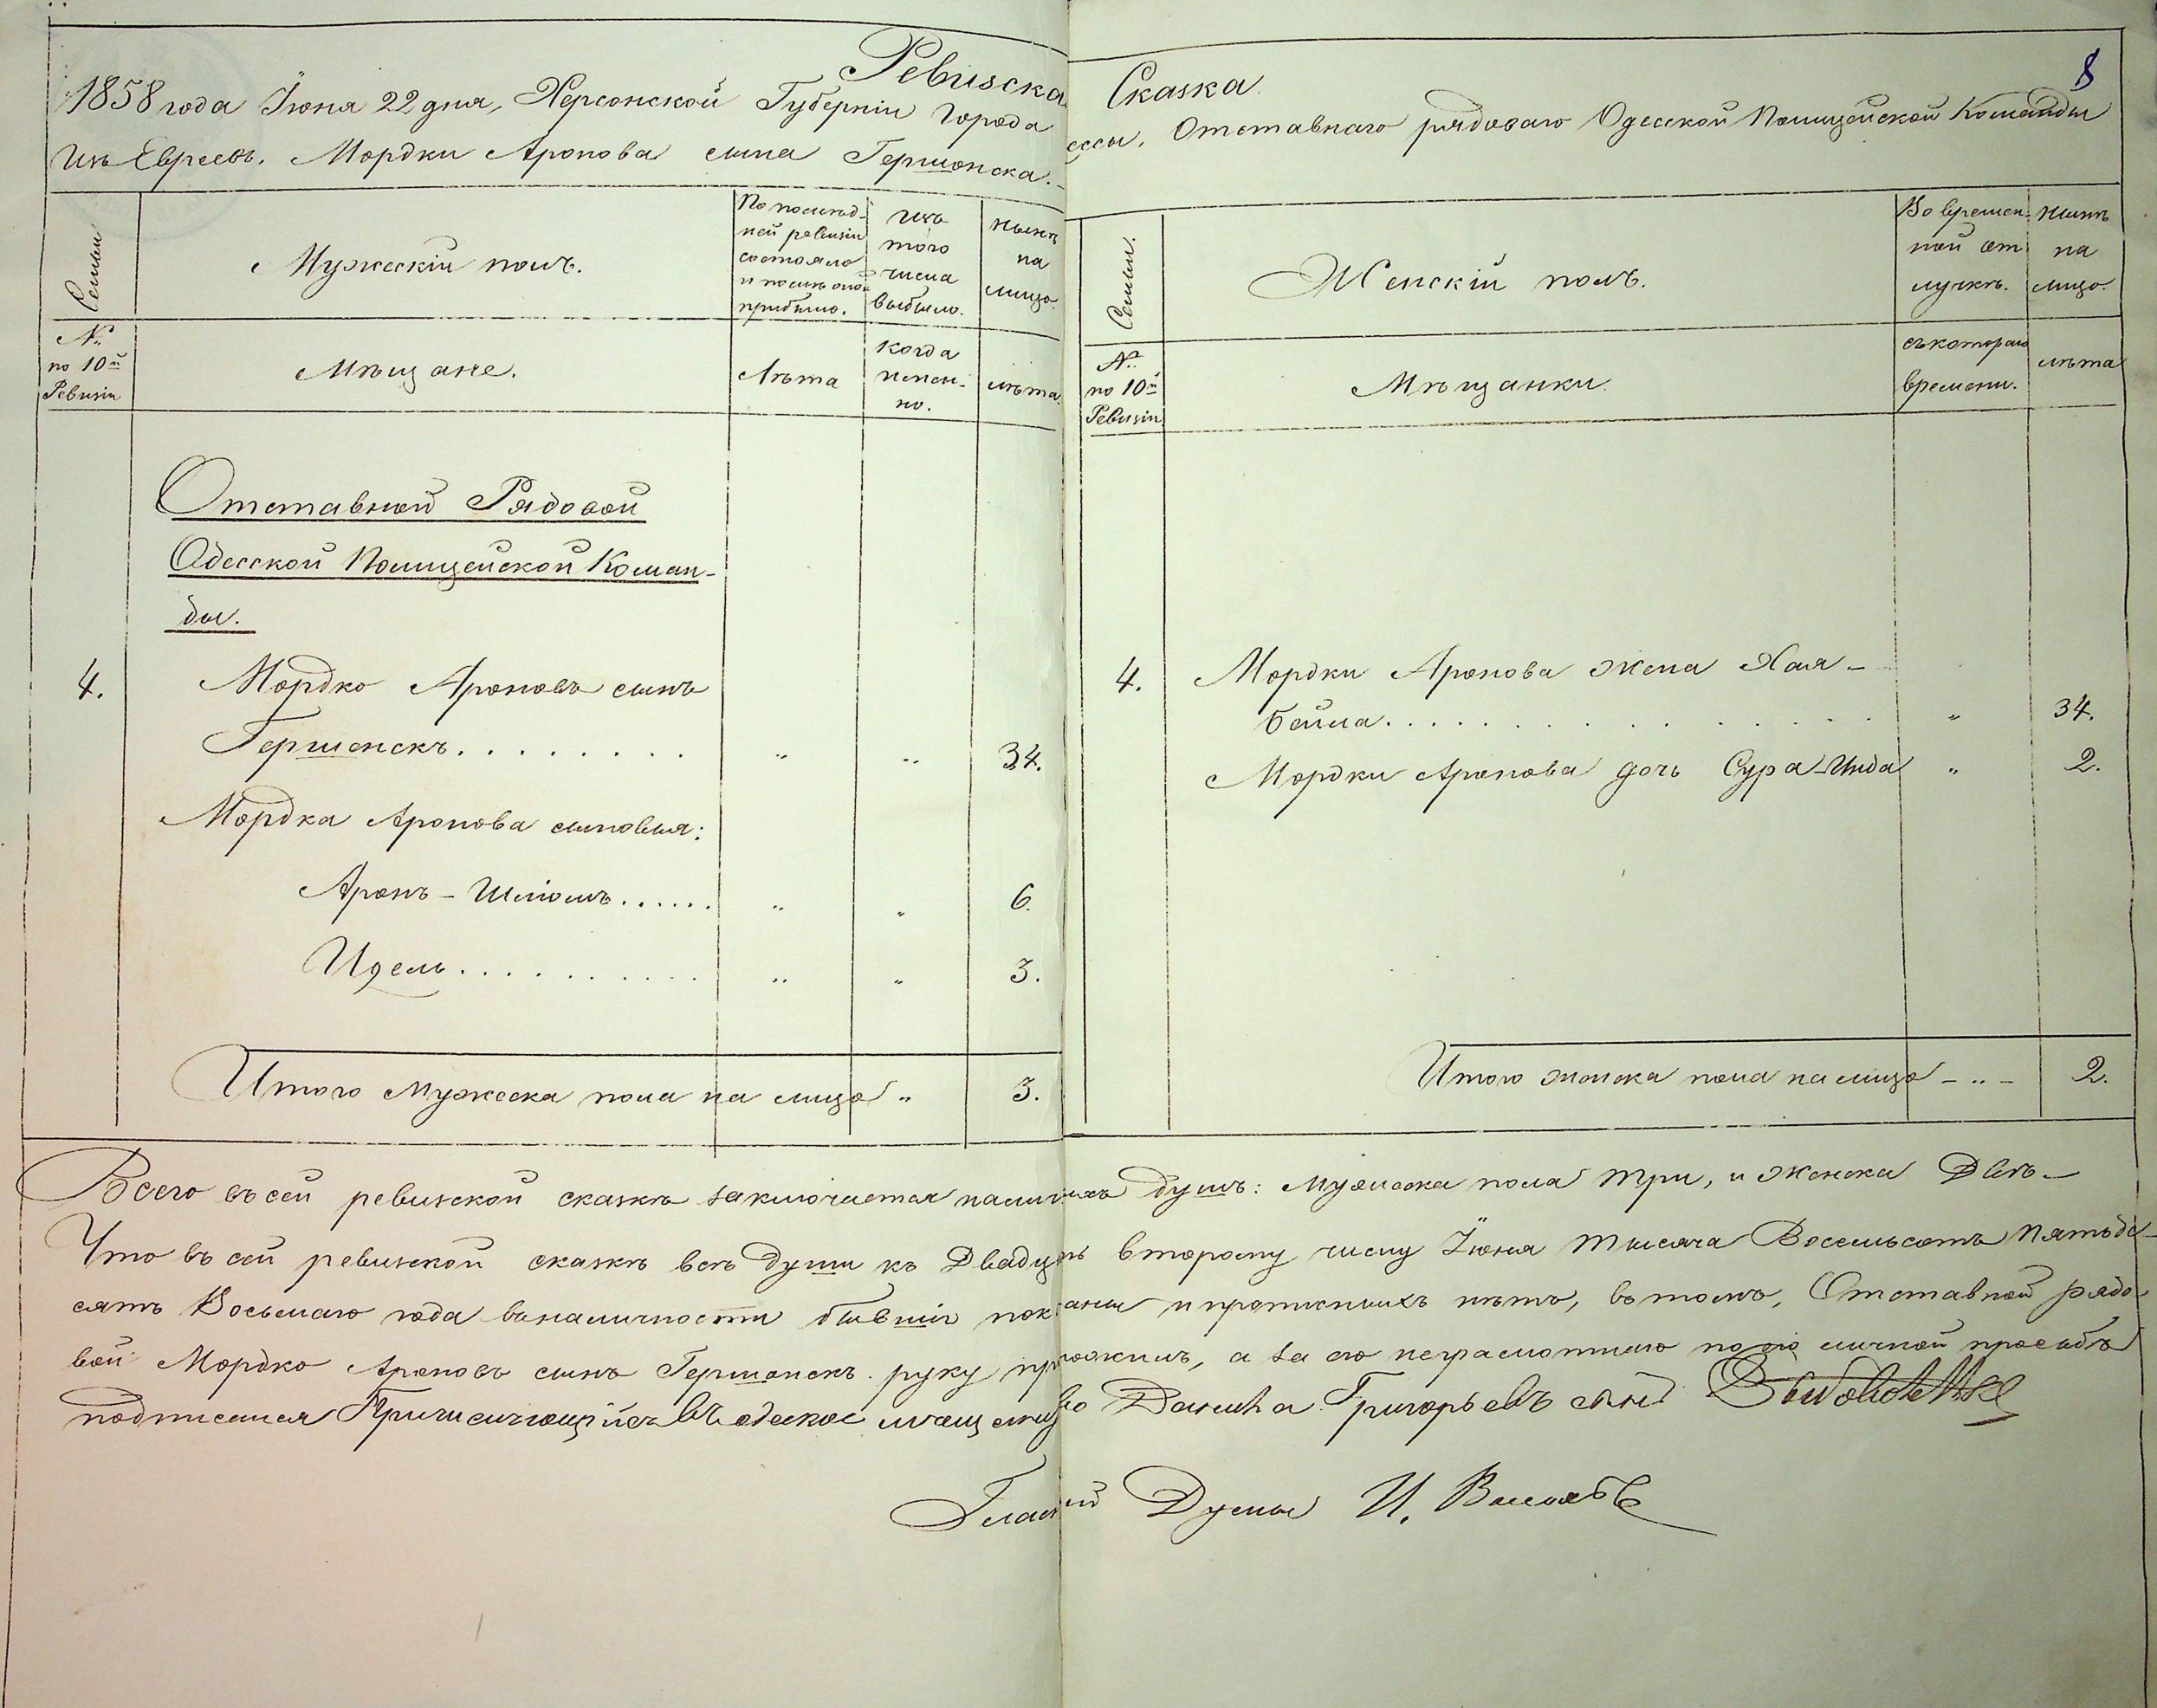 8
Ревизская Сказка.
1858 года Іюня 22 дня, Херсонской Губерніи города
ессы, Отставнаго рядоваго Одесской Полицейской Команды
Изъ Евреевъ. Мордки Аронова сына Гершонска.
Семьи
Мужескій полъ.
По послѣд-
ней ревизіи
состояло
и послѣ оной
прибыло.
Изъ
того
числа
выбыло.
Нынѣ
на
лицо.
№
по 10й
Ревизіи
Мѣщане.
Лѣта
Когда
имен-
но.
лѣта.
Отставной Рядовой
Одесской Полицейской Коман-
ды.
4. Мордко Ароновъ сынъ
Гершонскъ. . . . . . . . „ „ 34.
Мордка Аронова сыновья:
Аронъ-Шліомъ. . . . . . „ „ 6.
Идель. . . . . . . . . . „ „ 3.
Итого Мужеска пола на лицо „ 3.
Семьи.
Женскій полъ.
Во времен-
ной от
лучкѣ.
Нынѣ
на
лицо.
№
по 10й
Ревизіи
Мѣщанки.
съ котораго
времени.
лѣта
4. Мордки Аронова жена Хая-
Бейла. . . . . . . . . . „ 34.
Мордки Аронова дочь Сура-Инда „ 2.
Итого женска пола на лицо - „ - 2.
Всего въ сей ревизской сказкѣ заключается наличныхъ душъ: мужеска пола три, и женска Двѣ-
Что въ сей ревизской сказкѣ всѣ души къ Двадцать второму числу Іюня тысяча Восемьсотъ Пятьде-
сятъ Восьмаго года въ наличности бывшіе показаны и прописныхъ нѣтъ, въ томъ, Отставной рядо-
вой Мордко Ароновъ сынъ Гершонскъ руку приложилъ, а за его неграмотного по его личной просьбѣ
подписался Причисляющійся въ одеское мѣщанство Данила Григорьевъ сынъ
Гласный Думы И.